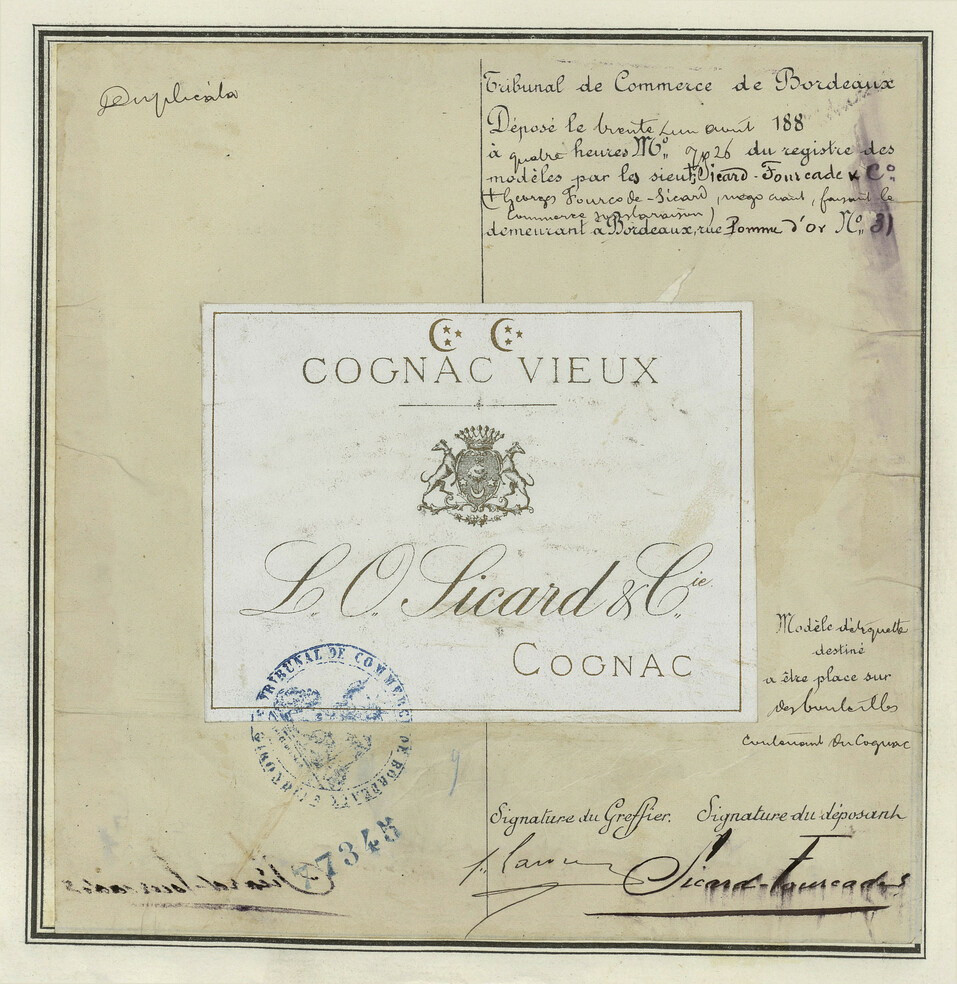 Duplicata
Tribunal de Commerce de Bordeaux
Déposé le trente un août 188
à quatre heures No. du registre des
modèles par les sieurs Sicard-Fourcade & Co.
(Georges Fourcade-Sicard, négociant, faisant le
commerce sous la raison)
demeurant à Bordeaux, rue Pomme d'Or No. 31
COGNAC VIEUX
L. O. Sicard & Cie.
COGNAC
TRIBUNAL DE COMMERCE DE BORDEAUX
Modèle d'étiquette
destiné
a être place sur
des bouteilles
Contenant du Cognac
Signature du Greffier. Signature du déposant
Sicard-Fourcade
77345